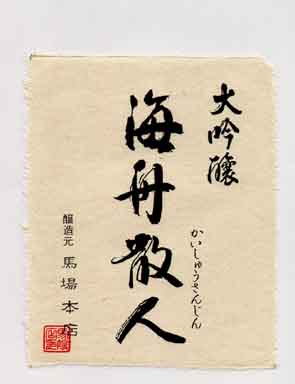 大吟醸
海舟散人
かいしゅうさんじん
醸造元 馬場本店